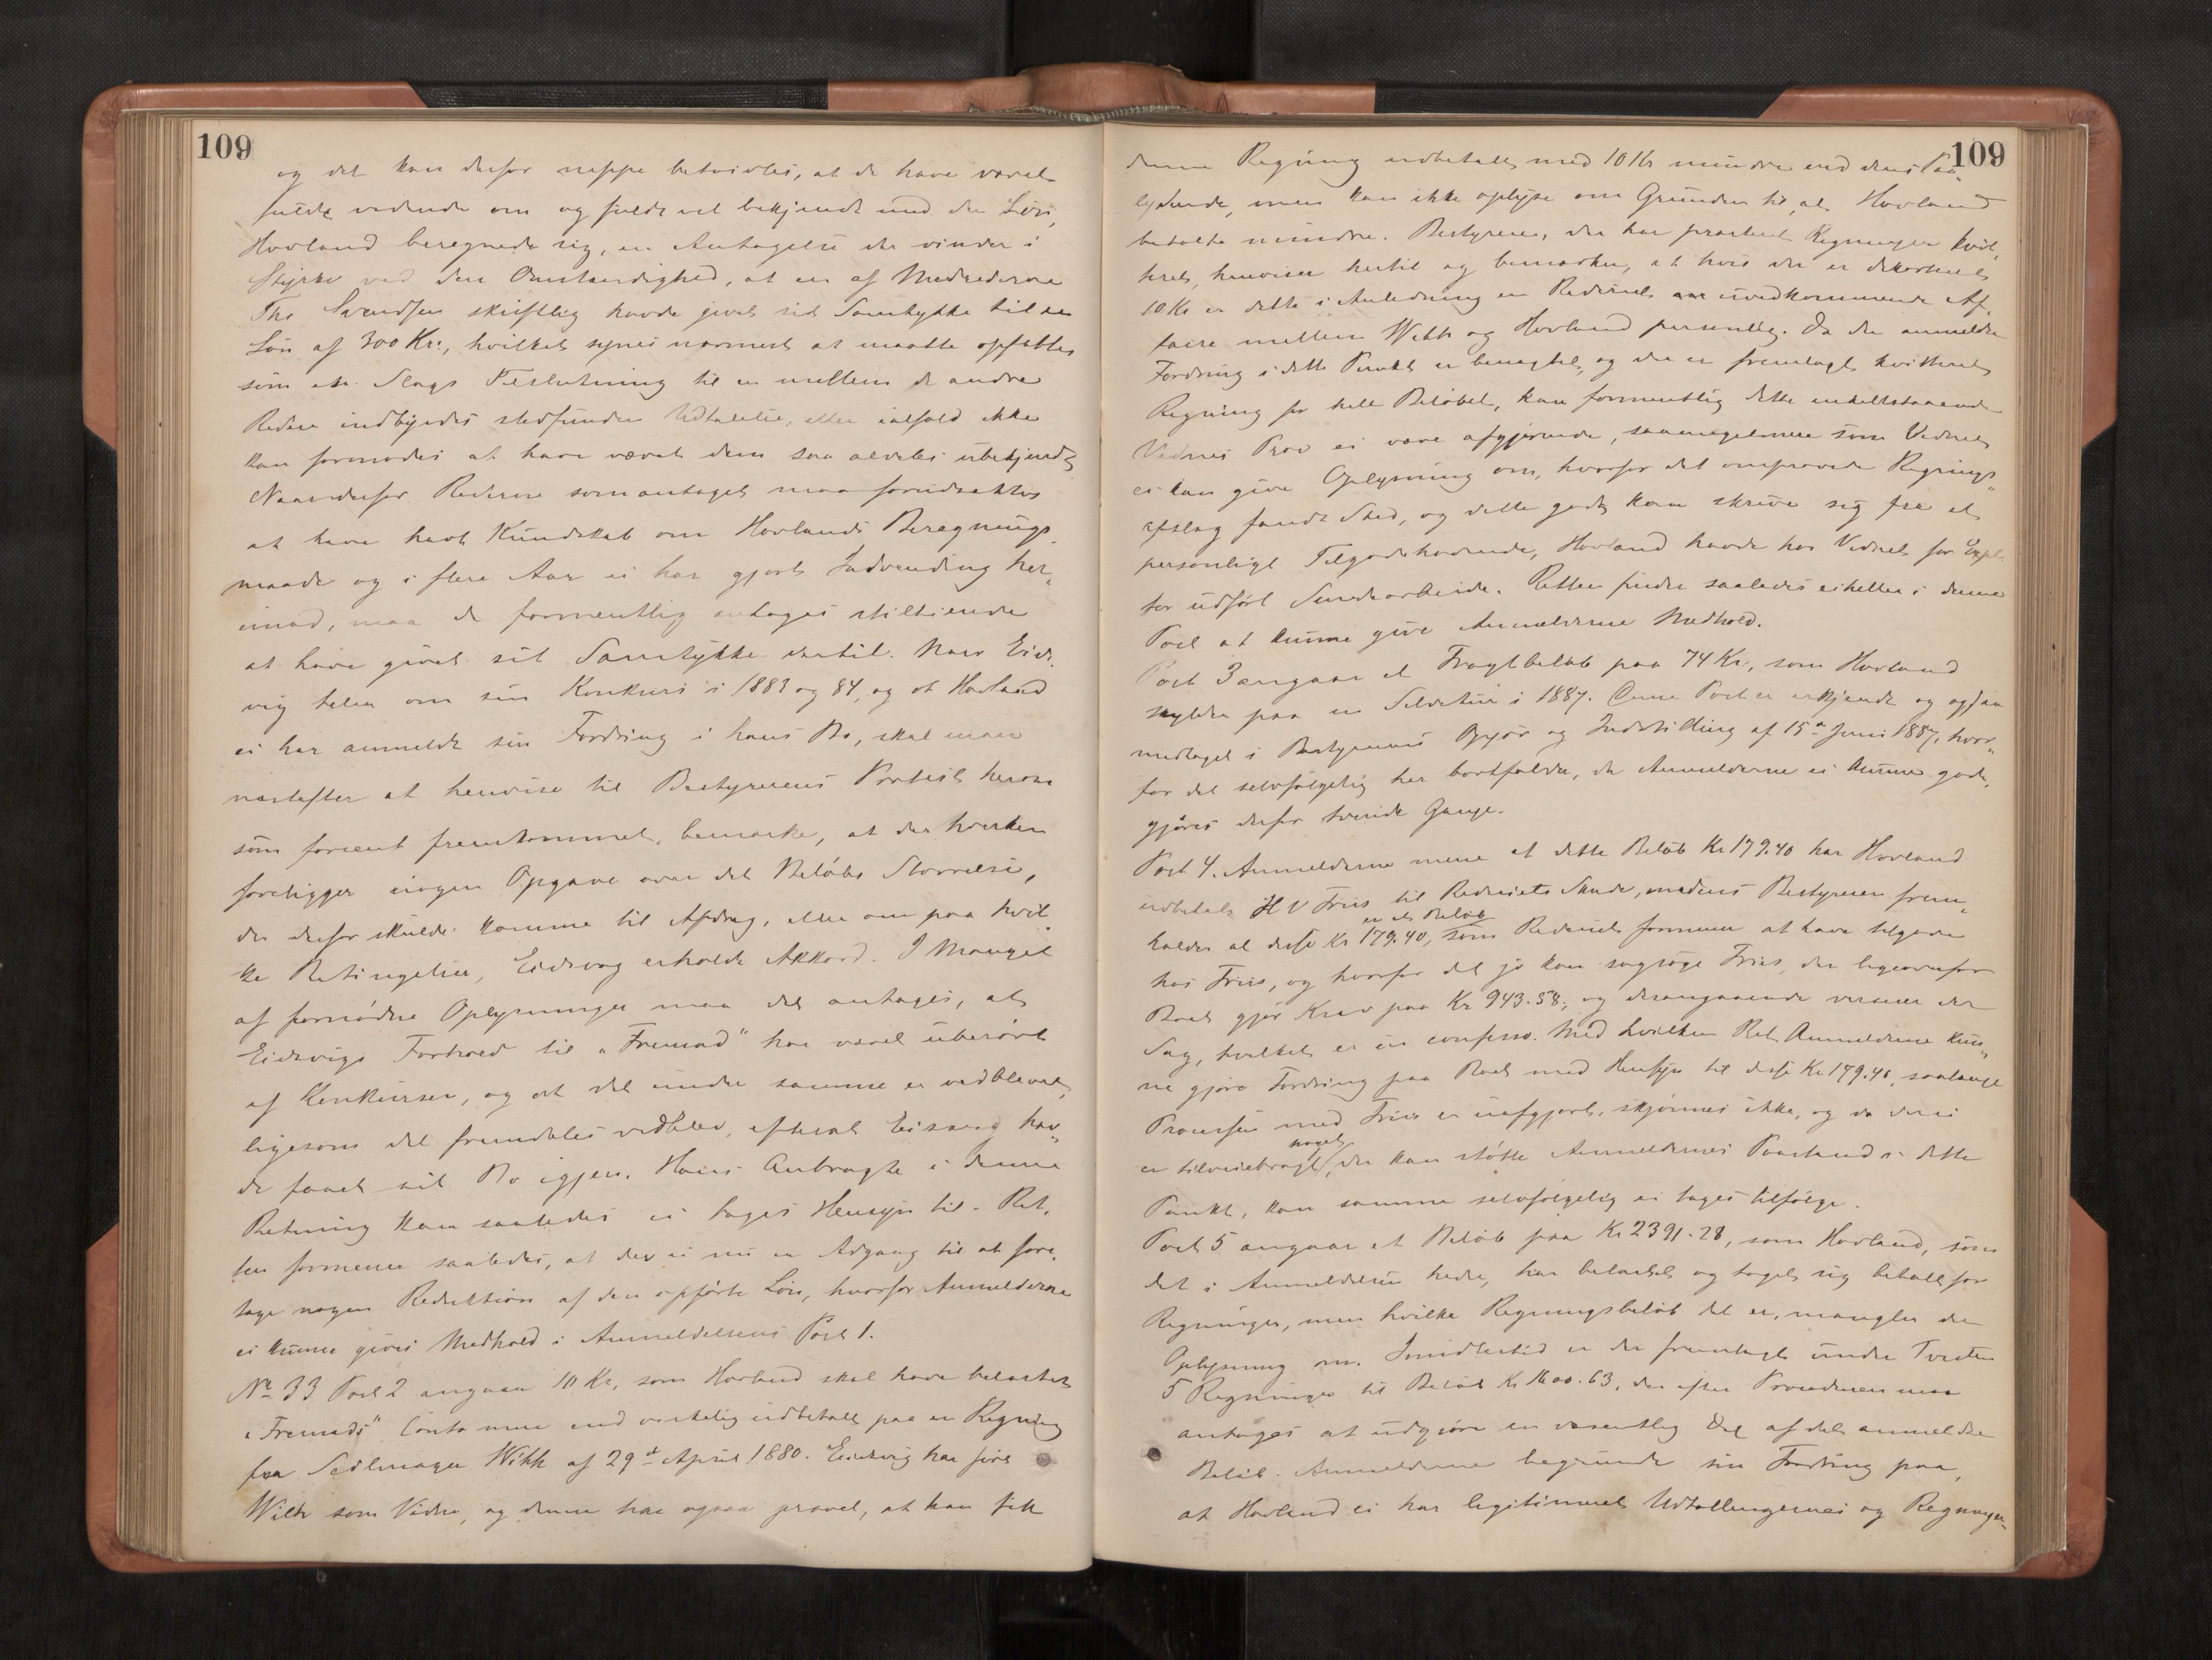 109
og det kan derfor neppe betvivles, at de have været
fuldt vidende om og fuldt vel bekjendt med den Løn,
Hovland beregnede sig, en Antagelse der vinder i
Styrke ved den Omstændighed, at en af Medrederne
Ths Svendsen skriftlig havde givet sit Samtykke til en
Løn af 300 Kr:, hvilket synes nærmest at maatte opfattes
som en Slags Tilslutning til en mellem de andre
Redere indbyrdes stedfunden Udtalelse, eller ialfald ikke
kan formodes at have været dem saa aldeles ubekjendt
Naar derfor Rederne som antaget maa forudsættes
at have havt Kundskab om Hovlands Beregnings
maade og i flere Aar ei har gjort Indvending her„
imod, maa de formentlig antages stiltiende
at have givet sit Samtykke dertil. Naar Eids
vig taler om sin Konkurs i 1883 og 84, og at Hovland
ei har anmeldt sin Fordring i hans Bo, skal man
næstefter at henvise til Bestyrerens Protest herom
som forsent fremkommet, bemærke, at der hverken
foreligger nogen Opgave over det Beløbs Størrelse,
der derfor skulde komme til Afdrag, eller om paa hvil
ke Betingelser, Eidsvig erholdt Akkord. I Mangel
af fornødne Oplysninger maa det antages, at
Eidsvigs Forhold til „Fremad" har været uberørt
af Konkursen, og at det under samme er vedblevet,
ligesom det fremdeles vedblev, efterat Eidsvig hav„
de faaet sit Bo igjen. Hans Anbragte i denne
Retning kan saaledes ei tages Hensyn til. Ret,
ten formener saaledes, at der ei nu er Adgang til at fore,
tage nogen Reduktion af den opførte Løn, hvorfor Anmelderne
ei kunne gives Medhold i Anmeldelsens Post 1.
No 33 Post 2 angaar 10 Kr, som Hovland skal have belastet
„Fremads" Conto mere end virkelig udbetalt paa en Regning
fra Seilmager Withh af 29de April 1880. Eidsvig har ført
Withh som Vidne, og denne har ogsaa prøvet, at han fik
109
denne Regning udbetalt med 10 Kr mindre end dens Paa„
lydende, men kan ikke oplyse om Grunden til, at Hovland
betalte mindre. Bestyreren, der har præsteret Regningen kvit„
teret, henviser hertil og bemærker, at hvis der er dekorteret
10 Kr er dette i Anledning en Rederiet uvedkommende Af„
faire mellem Withh og Hovland personlig. Da den anmeldte
Fordring i dette Punkt er benægtet, og der er fremlagt kvitteret
Regning for hele Beløbet, kan formentlig dette enkeltstaaende
Vidnes Prov ei være afgjørende, saameget mere som Vidnet
ei kan give Oplysning om, hvorfor det omprovede Regnings„
afslag fandt Sted, og dette godt kan skrive sig fra et
personligt Tilgodehavende, Hovland havde hos Vidnet for Expl.
for udført Smedearbeide. Retten finder saaledes ei heller i denne
Post at kunne give Anmelderne Medhold.
Post 3 angaar et Fragtbeløb paa 74 Kr., som Hovland
skylder paa en Sildetur i 1887. Denne Post er erkjendt og ogsaa
medtaget i Bestyrerens Opgjør og Indstilling af 15de Juni 1887, hvor„
for det selvfølgelig her bortfalder, da Anmelderne ei kunne godt„
gjøres derfor tvende Gange.
Post 4. Anmelderne mene at dette Beløb Kr 179.40 har Hovland
udbetalt H V Friis til Rederiets Skade, medens Bestyreren frem„
holder at disse Kr 179.40, er et Beløb som Rederiet formener at have tilgode
hos Friis, og hvorfor det jo kan sagsøge Friis, der ligeoverfor
Boet gjør Krav paa Kr 943.58, og desangaaende verserer der
Sag, hvilket er in confesso. Med hvilken Ret Anmelderne kun„
ne gjøre Fordring paa Boet med Hensyn til disse Kr 179.40, saalænge
Processen med Friis er uafgjort, skjønnes ikke, og da der ei
er tilveiebragt noget, der kan støtte Anmeldernes Paastand i dette
Punkt, kan samme selvfølgelig ei tages tilfølge.
Post 5 angaar et Beløb paa Kr 2391.28, som Hovland, som
det i Anmeldelsen heder, har belastet og taget sig betalt for
Regninger, men hvilke Regningsbeløb det er, mangler der
Oplysning om. Imidlertid er der fremlagt under Tvisten
5 Regninger til Beløb Kr 1600.63, der efter Proceduren maa
antages at udgjøre en væsentlig Del af det anmeldte
Beløb. Anmelderne begrunde sin Fordring paa,
at Hovland ei har legitimeret Udtællingernes og Regninger„